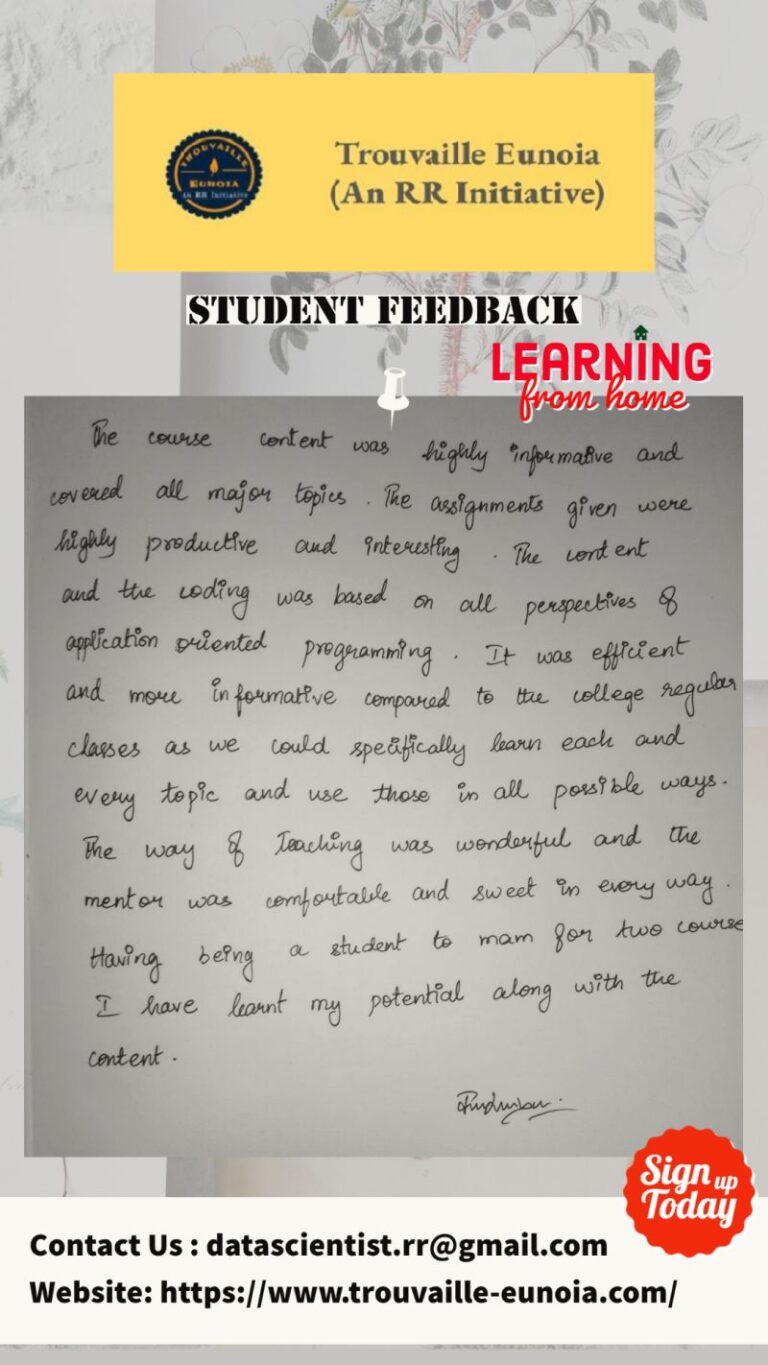 TROUVAILLE
EUNOIA
An RR Initiative
Trouvaille Eunoia
(An RR Initiative)
STUDENT FEEDBACK
LEARNING
from home
The course content was highly informative and
covered all major topics. The assignments given were
highly productive and interesting. The content
and the coding was based on all perspectives of
application oriented programming. It was efficient
and more informative compared to the college regular
classes as we could specifically learn each and
every topic and use those in all possible ways.
The way of Teaching was wonderful and the
mentor was comfortable and sweet in every way.
Having being a student to mam for two course
I have learnt my potential along with the
content.
Sign up
Today
Contact Us : datascientist.rr@gmail.com
Website: https://www.trouvaille-eunoia.com/